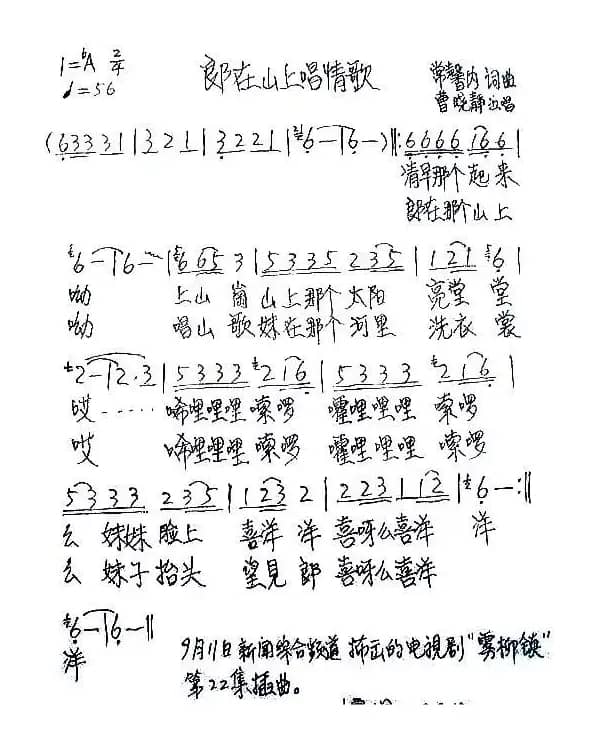 1=♭A 2/4
♩=56
郎在山上唱情歌
常馨内 词曲
曹晓静 演唱
(6333 1|3 2 1|3 2 2 1|6-|6-)‖:6666 166|
清早那个起来
郎在那个山上
6-|6-|665 3|5335 235|121 6|
呦 上山 崗 山上那个 太阳 亮堂 堂
呦 唱山 歌 妹在那个 河里 洗衣 裳
2-|2·3|5333 216|5333 216|
哎······ 唏哩哩哩 嗦啰 嚯哩哩哩 嗦啰
哎 唏哩哩哩 嗦啰 嚯哩哩哩 嗦啰
5333 235|123 2|223 1 12|6-:‖
么 妹妹 脸上 喜洋 洋 喜呀么喜洋 洋
么 妹子 抬头 望見 郎 喜呀么喜洋
6-|6-‖
洋
9月11日新闻综合频道 播出的电視剧"雾柳镇"
第22集插曲。